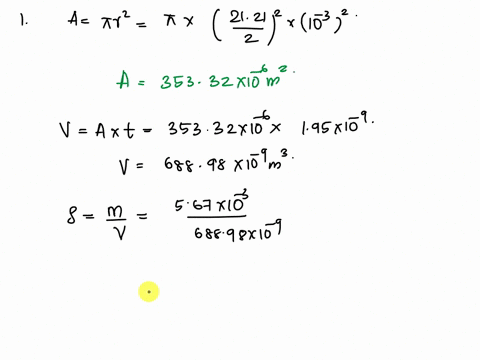 1. A = πr² = π × (21.21/2)² × (10⁻³)².
A = 353.32×10⁻⁶ m².
V = A × t = 353.32×10⁻⁶ × 1.95×10⁻⁹.
V = 688.98 ×10⁻⁹ m³.
ρ = m/V = 5.67×10⁻³/688.98×10⁻⁹